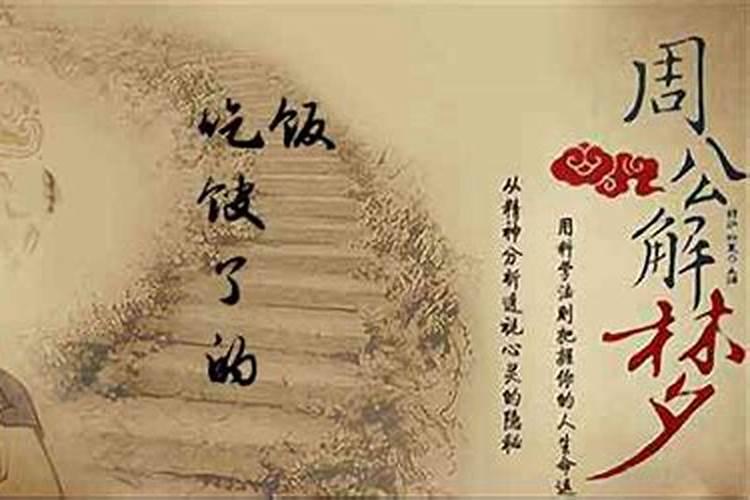 周公解梦
用科学法则把握你的人生命运
从精神分析透视心灵的隐秘
吃饭
馊了的